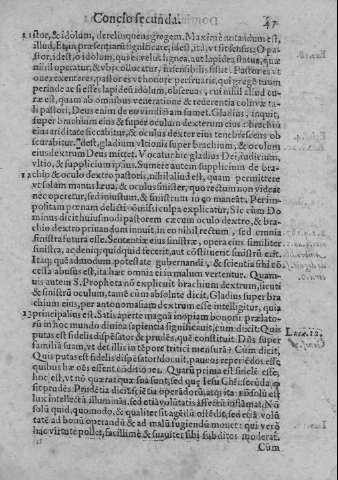 Concio secunda. 47
stor, & idolum, derelinquens gregem. Maximè notandum est,
illud, Et, in præsentiarũ significare, idest, ita, vt sit sensus: O pa-
stor, idest, ô idolum, qui es velut lignea, aut lapidea statua, quæ
nihil operatur, & vbi collocatur, insensibilis sistit. Pastor es vt
oues exenteres, pastor es vt honore persruaris, qui gregē tuum
perinde ac si esses lapideũ idolum, obseruas, cui nihil aliud cu-
ræ est, quam ab omnibus veneratione & reuerentia coli
pastori. Deus enim de nouissimam sumet. Gladius, inquit,
super brachium eius & super oculum dextrum eius: brachiũ
eius ariditate siccabitur, & oculus dexter eius tenebrescens ob
scurabitur. Idest, gladium vltionis super brachium, & oculum
eius dextrum Deus mittet. Vocatur hîc gladius Dei, iudicium,
vltio, & supplicium ipsius. Sumere autem supplicium de bra-
chio & oculo dextro pastori, nihil aliud est, quam permittere
vt solam manus læua, & oculus sinister, quo rectum non videat
nec operetur, sed iniustum, & sinistrum in eo maneāt. Perim-
politam pœnam delicti omissi culpa explicatur, Sic cum Do
minus dicit huiusmodi pastorem cæcum oculo dextro, & bra-
chio dextro priuandum innuit, in eo nihil rectum, sed omnia
sinistra futura esse. Sententiæ eius sinistræ, opera eius similiter
sinistra, ac deniq; quidquid fecerit, aut
Itaq; quēadmodum potestate gubernandi, & scientia sibi cō-
cessa abusus est, ita hæc omnia ei in malum vertentur. Quam-
uis autem S. Propheta nō explicuit brachium dextrum, sicuti
& sinistrũ oculum, tamē cũm absolutè dicit, Gladius super bra
chium eius, per antonomasiam dextrum esse intelligitur, quia
principalius est. Satis apertè magnā inopiam bonorũ prælato-
rũ in hoc mundo diuina sapientia significauit, cum dicit: Quis
putas est fidelis dispēsator & prudēs, quē constituit Dñs super
familiã suam, vt det illis in tēpore tritici mensurã? Cum dicit,
Quis putas est fidelis dispēsator? docuit, paucos reperiēdos esse,
quibus hæ oēs essent conditiones. Quarũ prima est fidelē esse,
hoc est, vt nō quærat quæ sua sunt, sed quę Iesu Christi: secũda, vt
sit prudēs. Prudētia dicit sciētia operādorũ, atq; ita nōsolũ est
lux intellectũ illuminās, sed etiā volũtatis affectũ inflāmat. Nō
solũ quid, quomodo, & qualiter sit agēdũ ostēdit, sed etiā volũ-
tatē ad bonũ operandũ & ad malũ fugiendũ mouet: qui verò
hac virtute pollet, facillimè & suauiter sibi subditos moderat.
Cùm
Lucæ. 12.